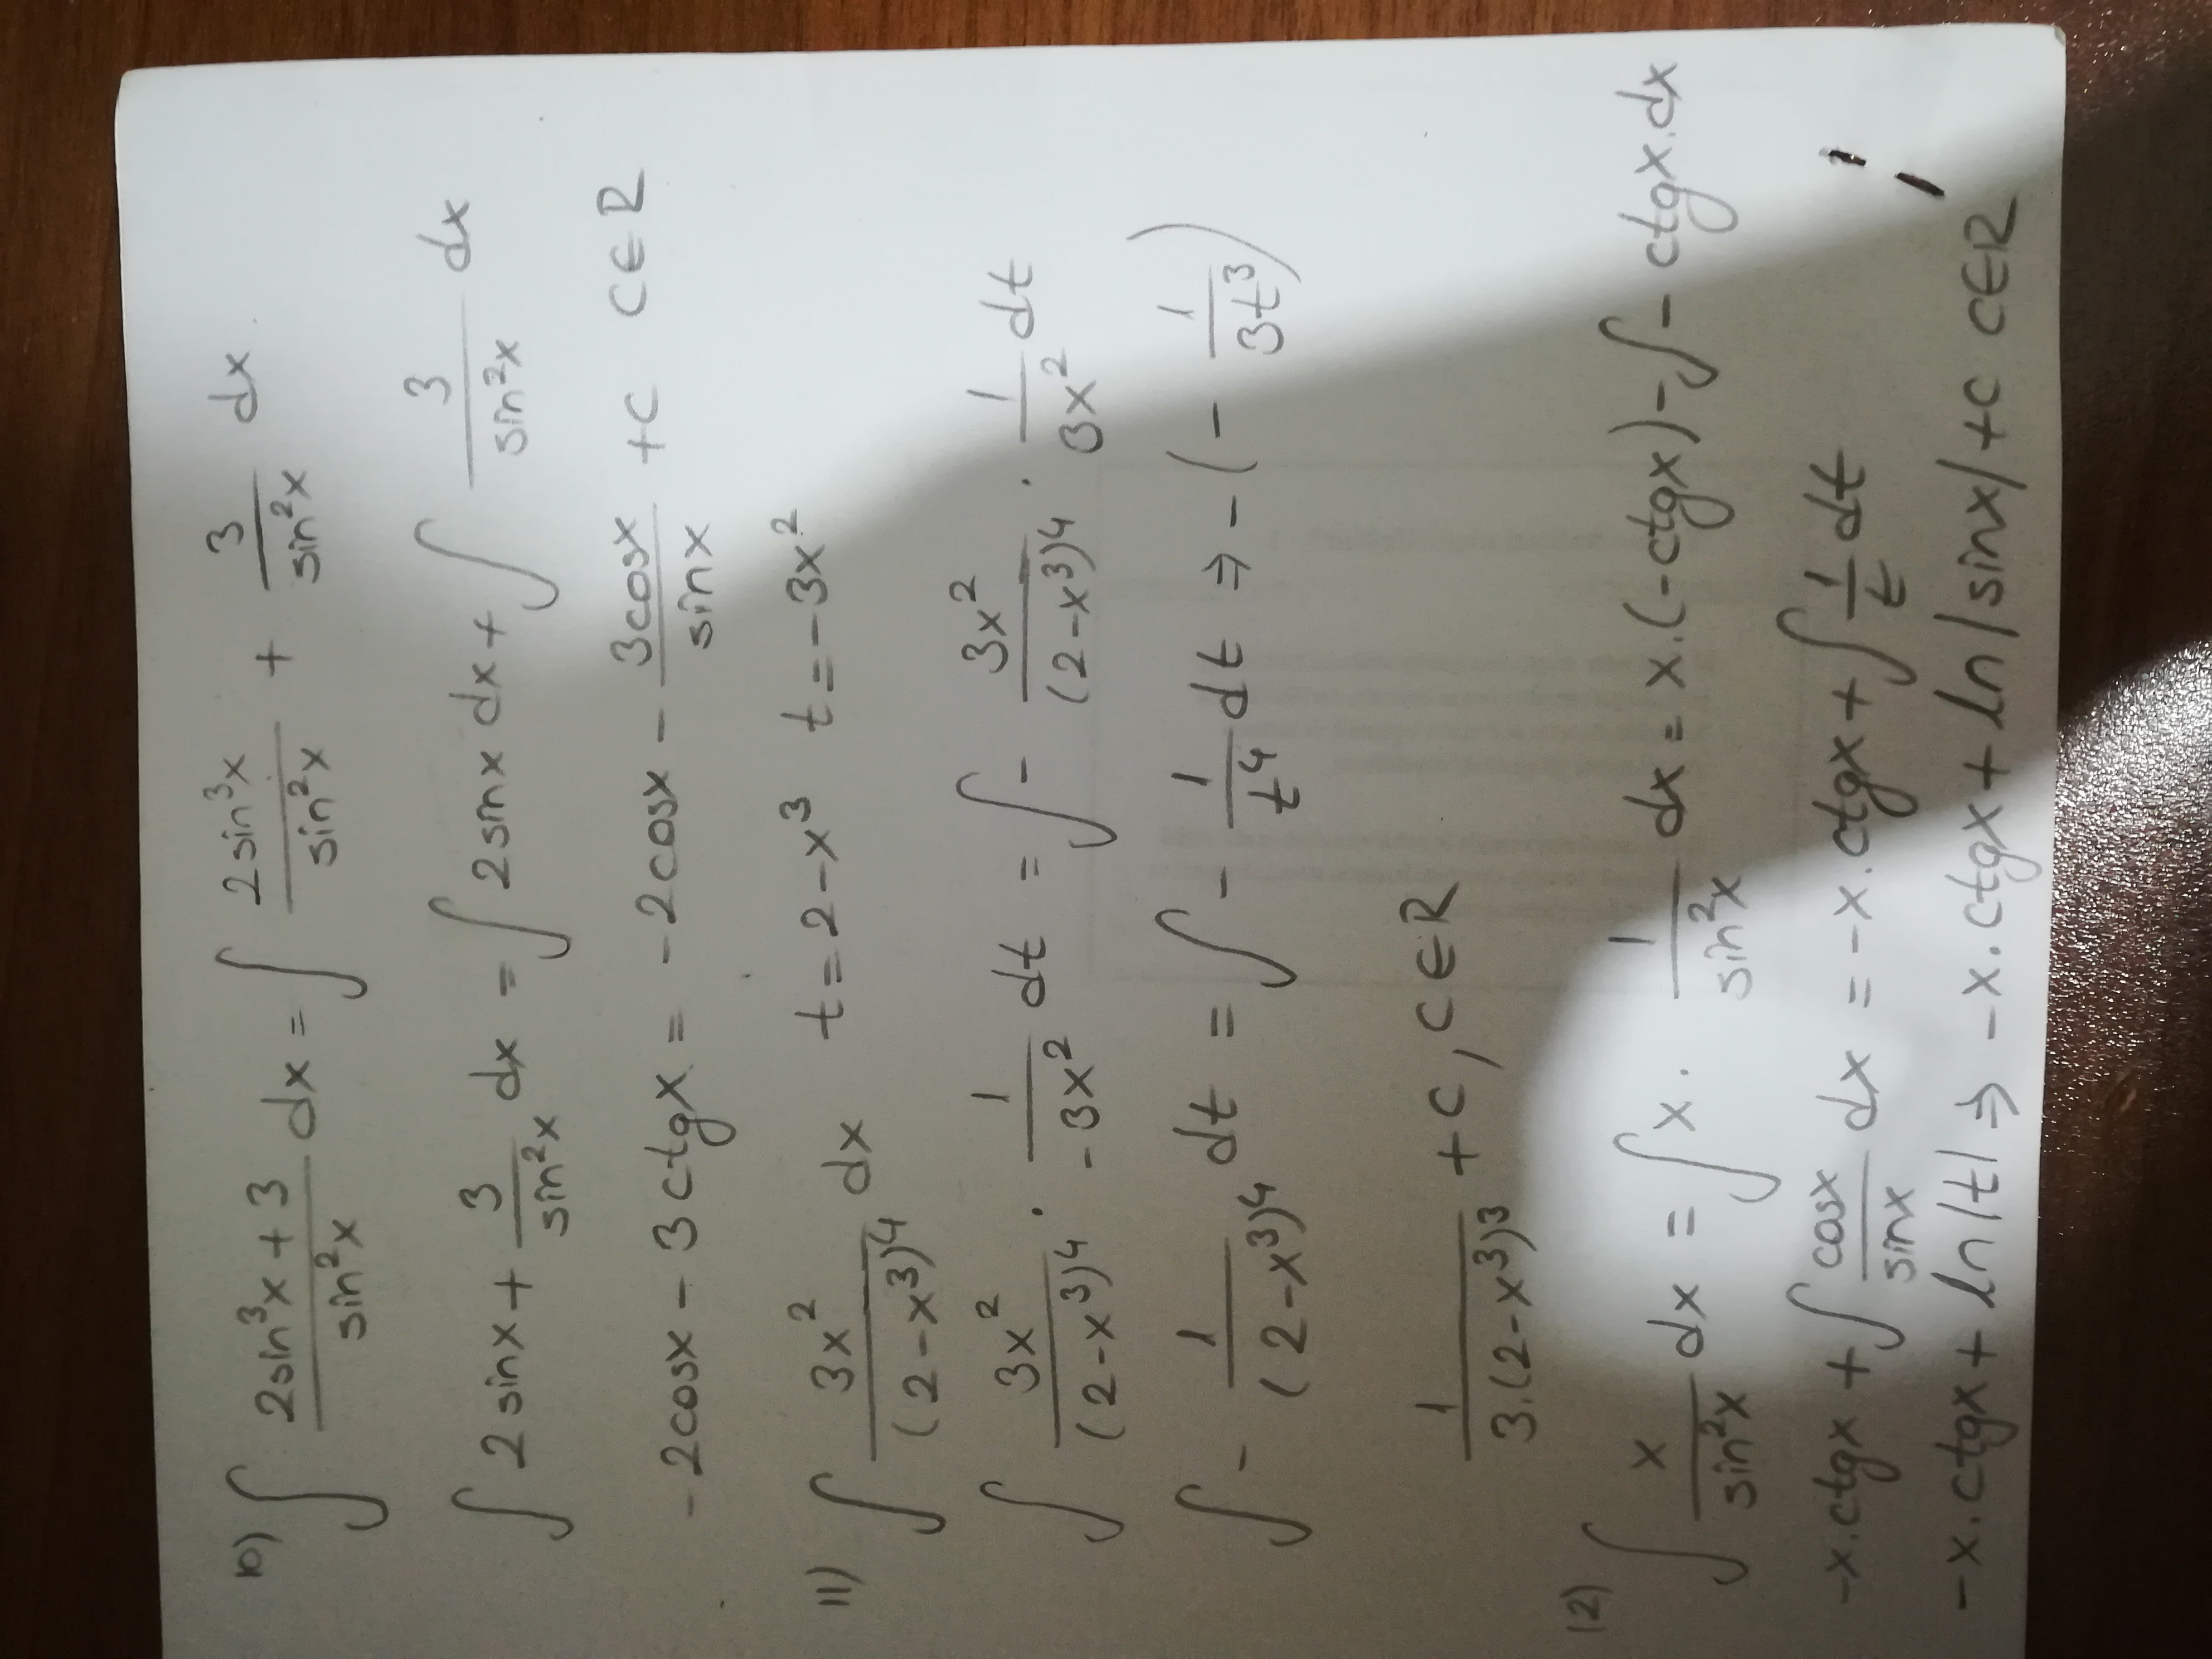 10) ∫ (2sin³x + 3)/(sin²x) dx = ∫ (2sin³x)/(sin²x) + 3/(sin²x) dx
∫ 2sinx + 3/(sin²x) dx = ∫ 2sinx dx + ∫ 3/(sin²x) dx
-2cosx - 3ctgx = -2cosx - (3cosx)/(sinx) + C C∈R
11) ∫ 3x²/(2-x³)⁴ dx t = 2-x³ t = -3x²
∫ 3x²/(2-x³)⁴ · 1/(-3x²) dt = ∫ - 3x²/(2-x³)⁴ · 1/(3x²) dt
∫ - 1/(2-x³)⁴ dt = ∫ - 1/t⁴ dt ⇒ - (- 1/(3t³))
1/(3.(2-x³)³) + C, C∈R
12) ∫ x/(sin²x) dx = ∫ x. 1/(sin²x) dx = x.(-ctgx) - ∫ - ctgx.dx
-x.ctgx + ∫ cosx/sinx dx = -x.ctgx + ∫ 1/t dt
-x.ctgx + ln|t| ⇒ -x.ctgx + ln|sinx| + C C∈R